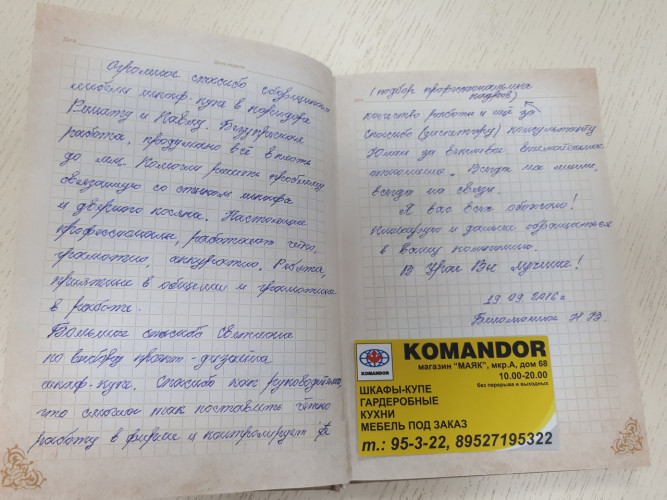 Дата
Огромное спасибо сборщикам
мебели шкаф-купе в коридоре
Ринату и Павлу. Безупречная
работа, продумано всё вплоть
до мел. Помогли решить проблему
связанную со стыком шкафа
и дверного косяка. Настоящие
профессионалы, работают чётко,
грамотно, аккуратно. Ребята,
приятные в общении и грамотные
в работе.
Большое спасибо Светлане
по выбору проект-дизайна
шкаф-купе. Спасибо как руководителю,
что смогли так поставить чётко
работу в фирме и контролирует
(подбор профессиональных
кадров)
качество работы и ещё за
спасибо (дизайнеру) консультанту
Юлии за вежливое внимательное
отношение. Всегда на линии,
всегда на связи.
Я вас всех обожаю!
Планирую и дальше обращаться
в вашу компанию.
В Урае Вы лучшие!
19.09.2016г
KOMANDOR
магазин "МАЯК", мкр.А, дом 68
10.00-20.00
без перерыва и выходных
ШКАФЫ-КУПЕ
ГАРДЕРОБНЫЕ
КУХНИ
МЕБЕЛЬ ПОД ЗАКАЗ
т.: 95-3-22, 89527195322